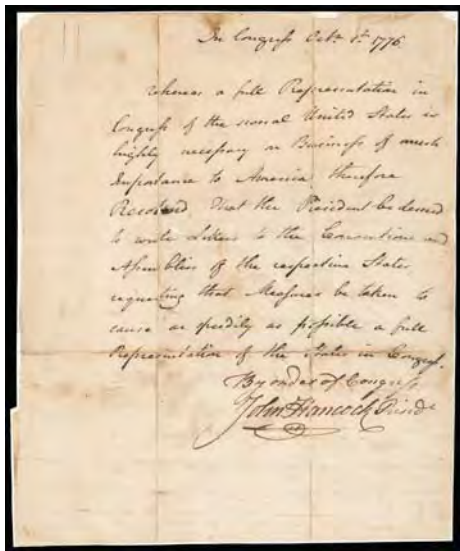 In Congress Octr. 1st. 1776
Whereas a full Representation in
Congress of the several United States is
highly necessary as Business of much
Importance to America therefore
Resolved That the President be desired
to write Letters to the Conventions and
Assemblies of the respective States
requesting that Measures be taken to
cause as speedily as possible a full
Representation of the States in Congress.
By order of Congress
John Hancock Presidt